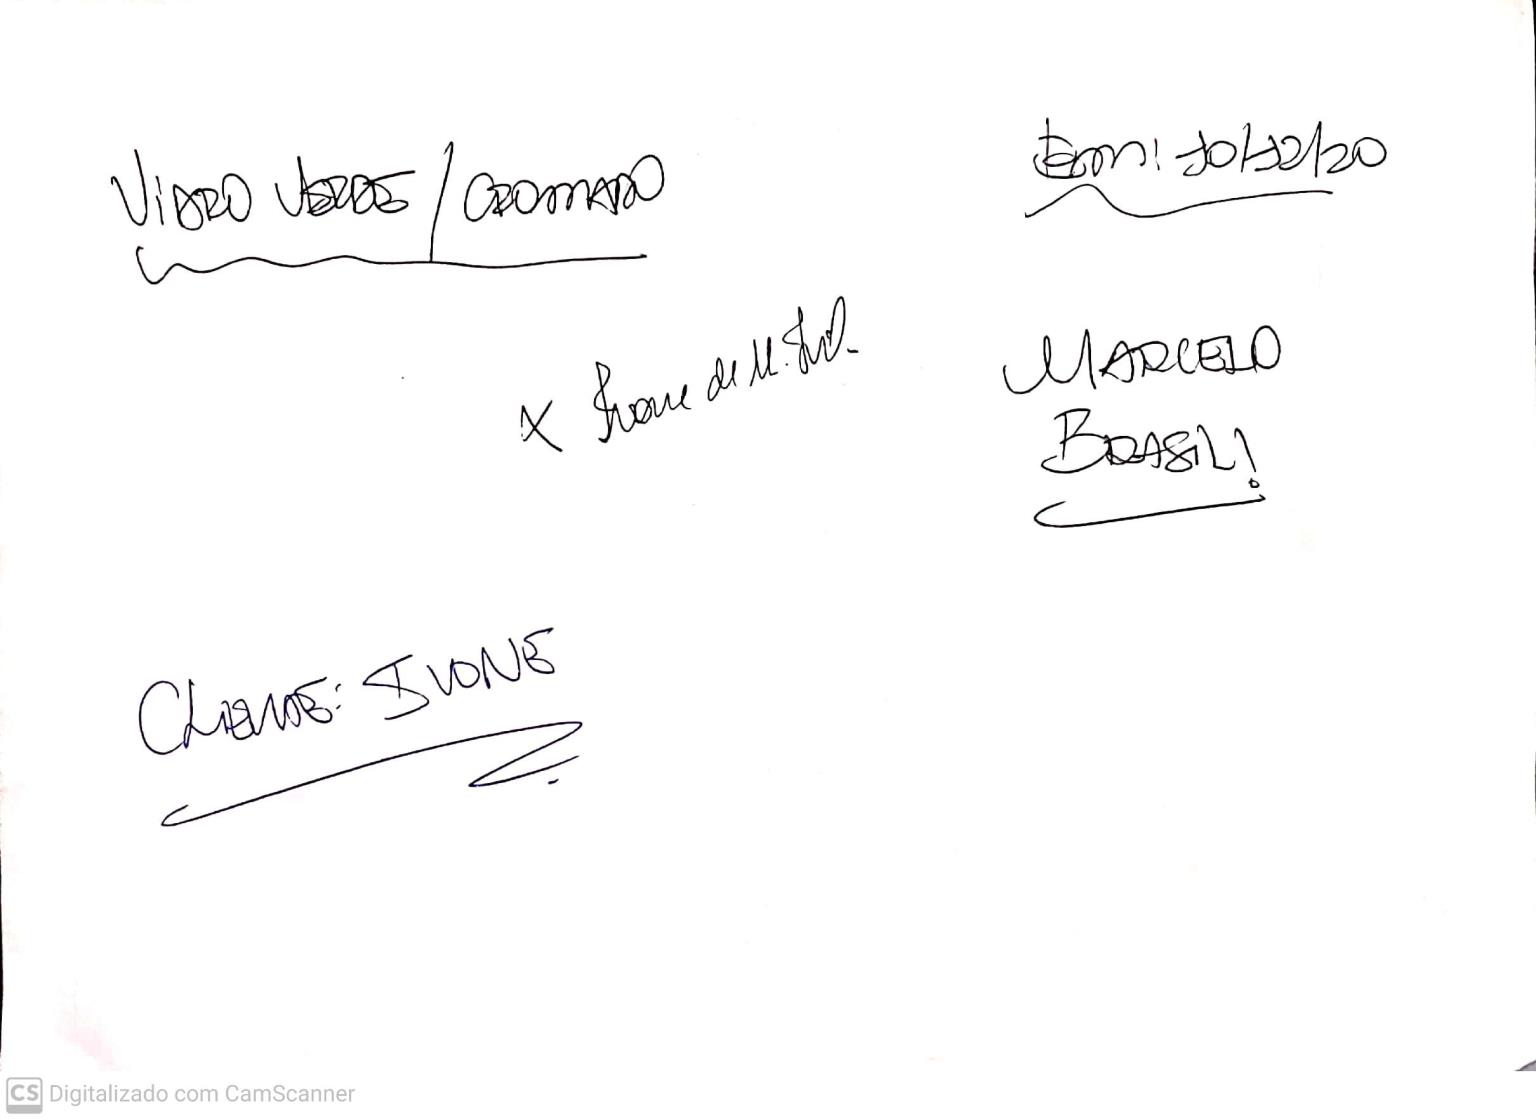 VIDRO VERDE / CROMADO
Em: 10/12/20
x Ivone de M.
MARCELO
BRASIL!
CLIENTE: IVONE
CS Digitalizado com CamScanner